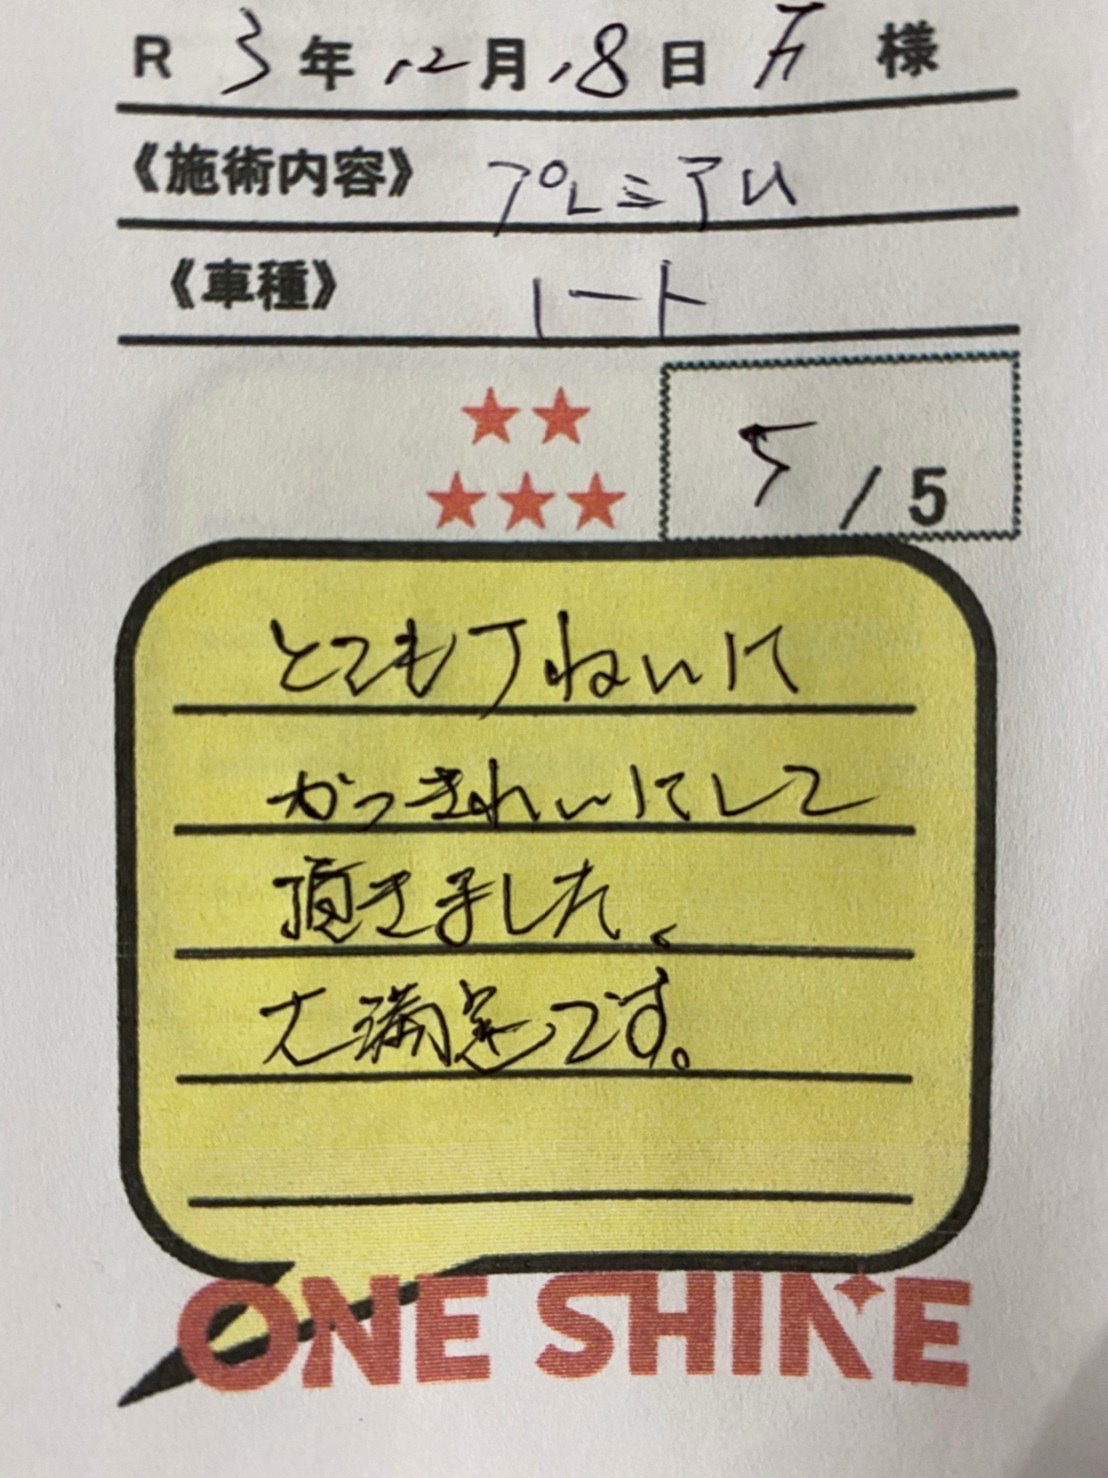 R 3年 12月 18日 様
《施術内容》 プレミアム
《車種》 ノート
5 / 5
とても丁ねいに
かつきれいにして
頂きました、
大満足です。
ONE SHINE